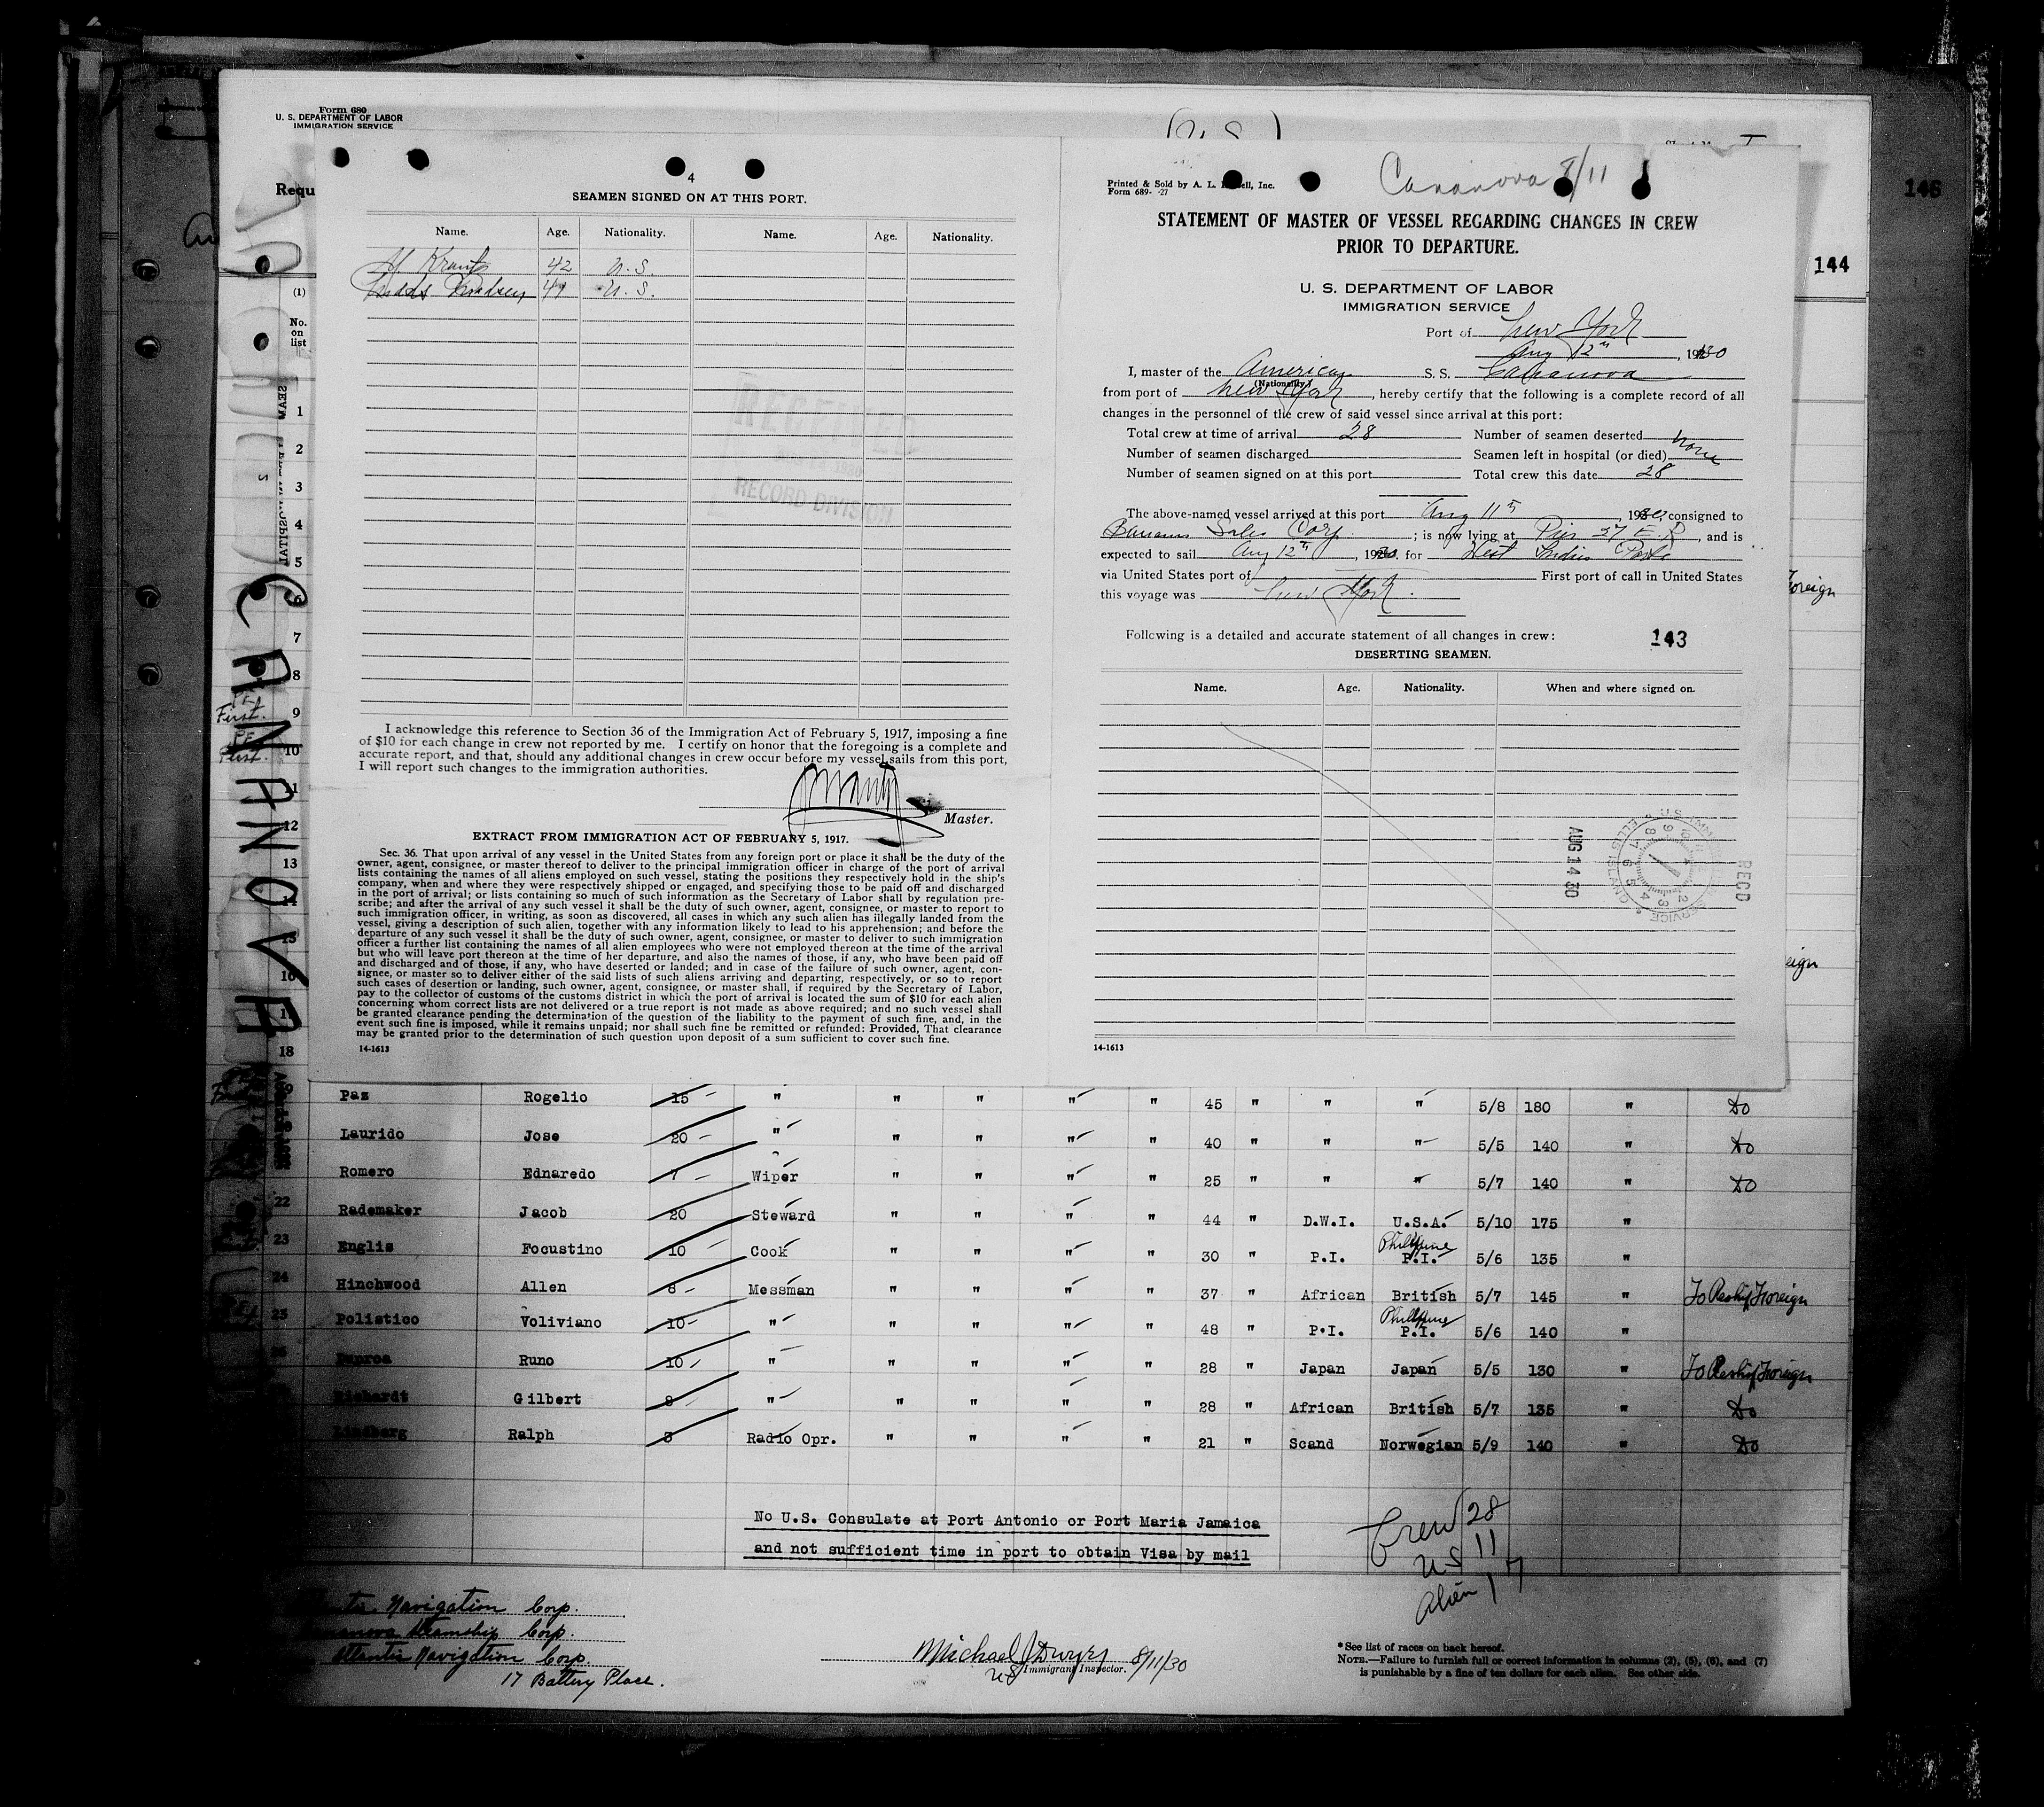 Form 680
U. S. DEPARTMENT OF LABOR
IMMIGRATION SERVICE
Requ
(1)
No.
on
list
1
2
3
4
5
6
7
8
9
10
11
12
13
15
16
18
CANANOVA
First.
First.
4
SEAMEN SIGNED ON AT THIS PORT.
Name. Age. Nationality. Name. Age. Nationality.
42 U.S.
U.S.
RECEIVED
RECORD DIVISION
I acknowledge this reference to Section 36 of the Immigration Act of February 5, 1917, imposing a fine
of $10 for each change in crew not reported by me. I certify on honor that the foregoing is a complete and
accurate report, and that, should any additional changes in crew occur before my vessel sails from this port,
I will report such changes to the immigration authorities.
Master.
EXTRACT FROM IMMIGRATION ACT OF FEBRUARY 5, 1917.
Sec. 36. That upon arrival of any vessel in the United States from any foreign port or place it shall be the duty of the
owner, agent, consignee, or master thereof to deliver to the principal immigration officer in charge of the port of arrival
lists containing the names of all aliens employed on such vessel, stating the positions they respectively hold in the ship's
company, when and where they were respectively shipped or engaged, and specifying those to be paid off and discharged
in the port of arrival; or lists containing so much of such information as the Secretary of Labor shall by regulation pre-
scribe; and after the arrival of any such vessel it shall be the duty of such owner, agent, consignee, or master to report to
such immigration officer, in writing, as soon as discovered, all cases in which any such alien has illegally landed from the
vessel, giving a description of such alien, together with any information likely to lead to his apprehension; and before the
departure of any such vessel it shall be the duty of such owner, agent, consignee, or master to deliver to such immigration
officer a further list containing the names of all alien employees who were not employed thereon at the time of the arrival
but who will leave port thereon at the time of her departure, and also the names of those, if any, who have been paid off
and discharged and of those, if any, who have deserted or landed; and in case of the failure of such owner, agent, con-
signee, or master so to deliver either of the said lists of such aliens arriving and departing, respectively, or so to report
such cases of desertion or landing, such owner, agent, consignee, or master shall, if required by the Secretary of Labor,
pay to the collector of customs of the customs district in which the port of arrival is located the sum of $10 for each alien
concerning whom correct lists are not delivered or a true report is not made as above required; and no such vessel shall
be granted clearance pending the determination of the question of the liability to the payment of such fine, and, in the
event such fine is imposed, while it remains unpaid; nor shall such fine be remitted or refunded: Provided, That clearance
may be granted prior to the determination of such question upon deposit of a sum sufficient to cover such fine.
14-1613
Printed & Sold by A. L. ell, Inc.
Form 689- -27
Cananova 8/11
STATEMENT OF MASTER OF VESSEL REGARDING CHANGES IN CREW
PRIOR TO DEPARTURE.
U. S. DEPARTMENT OF LABOR
IMMIGRATION SERVICE
Port of New York
Aug 12th, 1930
I, master of the American S. S. Cananova
(Nationality)
from port of New York, hereby certify that the following is a complete record of all
changes in the personnel of the crew of said vessel since arrival at this port:
Total crew at time of arrival 28 Number of seamen deserted none
Number of seamen discharged Seamen left in hospital (or died)
Number of seamen signed on at this port Total crew this date 28
The above-named vessel arrived at this port Aug 11th, 1930, consigned to
Banana Sales Corp; is now lying at Pier 27 E. R, and is
expected to sail Aug 12th, 1930. for West Indies Ports
via United States port of First port of call in United States
this voyage was New York.
Following is a detailed and accurate statement of all changes in crew: 143
DESERTING SEAMEN.
Name. Age. Nationality. When and where signed on.
RECD
AUG 14 30
14-1613
146
144
Foreign
eign
Paz Rogelio 15 " " " " " 45 " " " 5/8 180 " Do
Laurido Jose 20 " " " " " 40 " " " 5/5 140 " Do
Romero Ednaredo 7 Wiper " " " " 25 " " " 5/7 140 " Do
22 Rademaker Jacob 20 Steward " " " " 44 " D.W.I. U.S.A. 5/10 175 "
23 Englis Focustino 10 Cook " " " " 30 " P.I. Philippine P.I. 5/6 135 "
24 Hinchwood Allen 8 Messman " " " " 37 " African British 5/7 145 " To Reship Foreign
25 Polistico Voliviano 10 " " " " " 48 " P.I. Philippine P.I. 5/6 140 "
Runo 10 " " " " " 28 " Japan Japan 5/5 130 " To Reship Foreign
Gilbert 8 " " " " " 28 " African British 5/7 135 " Do
Ralph 3 Radio Opr. " " " " 21 " Scand Norwegian 5/9 140 " Do
No U.S. Consulate at Port Antonio or Port Maria Jamaica
and not sufficient time in port to obtain Visa by mail
Crew 28
U.S 11
Alien 17
Navigation Corp.
Steamship Corp.
Atlantic Navigation Corp.
17 Battery Place.
Michael Dwyer 8/11/30
US Immigrant Inspector.
* See list of races on back hereof.
NOTE.—Failure to furnish full or correct information in columns (2), (5), (6), and (7)
is punishable by a fine of ten dollars for each alien. See other side.